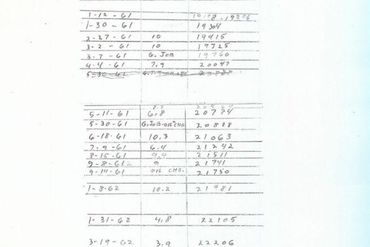 1-12-61
1-30-61 19304
2-27-61 10 19415
3-2-61 10 19725
3-7-61 G. JOB 19760
4-4-61 7.9 20047
5-30-61
5-11-61 6.8 20774
5-30-61 20818
6-18-61 10.3 21063
7-9-61 6.4 21242
8-15-61 9.4 21511
9-8-61 9 21741
9-14-61 OIL CHG. 21750
1-3-62 10.2 21981
1-31-62 4.8 22105
3-19-62 3.9 22206